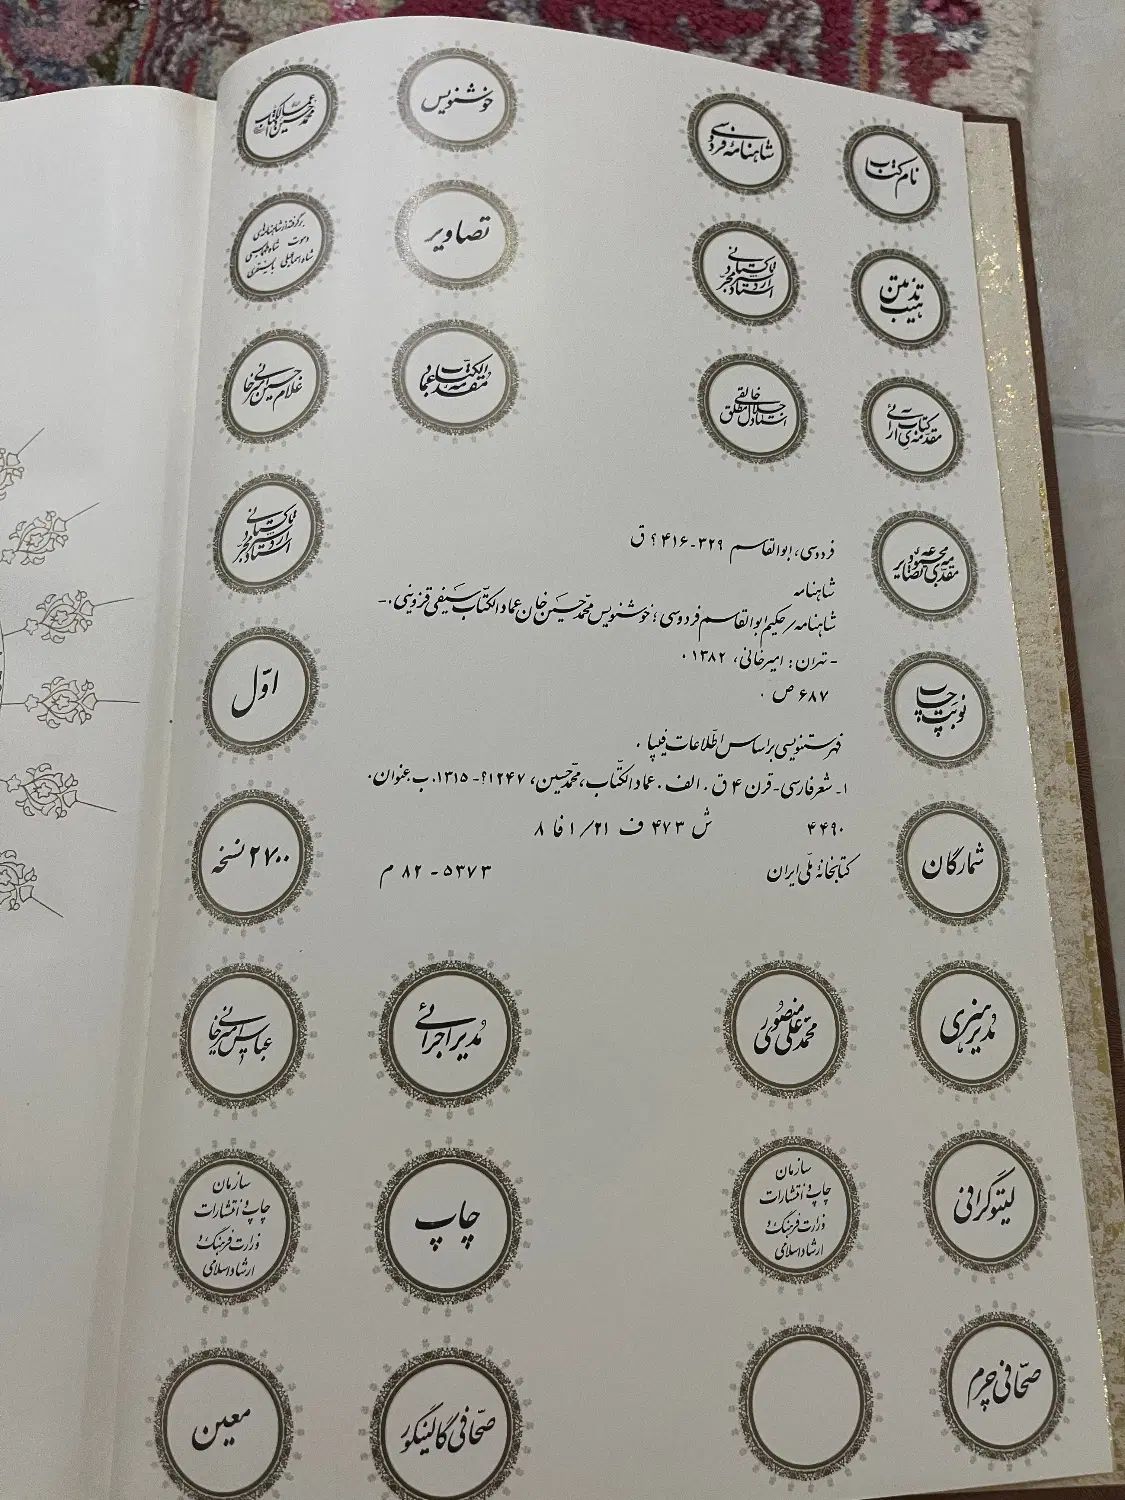 نام کتاب
شاهنامهٔ فردوسی
خوشنویس
محمد حسین عماد الکتاب
تذهیب متن
استاد اردشیر مجرد تاکستانی
تصاویر
برگرفته از شاهنامه‌های
دموت شاه طهماسبی
شاه اسماعیلی بایسنقری
مقدمه‌ی کتاب آرائی
استاد جلال خالقی مطلق
مقدمه عماد الکتاب
غلامحسین امیرخانی
مقدمه‌ی مجموعه تصاویر
استاد اردشیر مجرد تاکستانی
فردوسی، ابوالقاسم ۳۲۹-۴۱۶؟ ق
شاهنامه
شاهنامه/حکیم ابوالقاسم فردوسی؛ خوشنویس محمّد حسین خان عماد الکتّاب سیفی قزوینی.-
- تهران: امیرخانی، ۱۳۸۲.
۶۸۷ ص.
فهرستنویسی براساس اطّلاعات فیپا.
۱- شعر فارسی-قرن ۴ ق. الف. عماد الکتّاب، محمّد حسین، ۱۲۴۷؟-۱۳۱۵. ب. عنوان.
۴۴۹۰ ش ۴۷۳ ف ۱/۲۱ فا ۸
کتابخانهٔ ملّی ایران ۵۳۷۳ - ۸۲ م
نوبت چاپ
اوّل
شمارگان
۲۷۰۰ نسخه
مُدیر هنری
محمّد علی منصوری
مُدیر اجرائی
عباس امیرخانی
لیتوگرافی
سازمان
چاپ و انتشارات
وزارت فرهنگ و
ارشاد اسلامی
چاپ
سازمان
چاپ و انتشارات
وزارت فرهنگ و
ارشاد اسلامی
صحّافی چرم
صحّافی گالینگور
معین